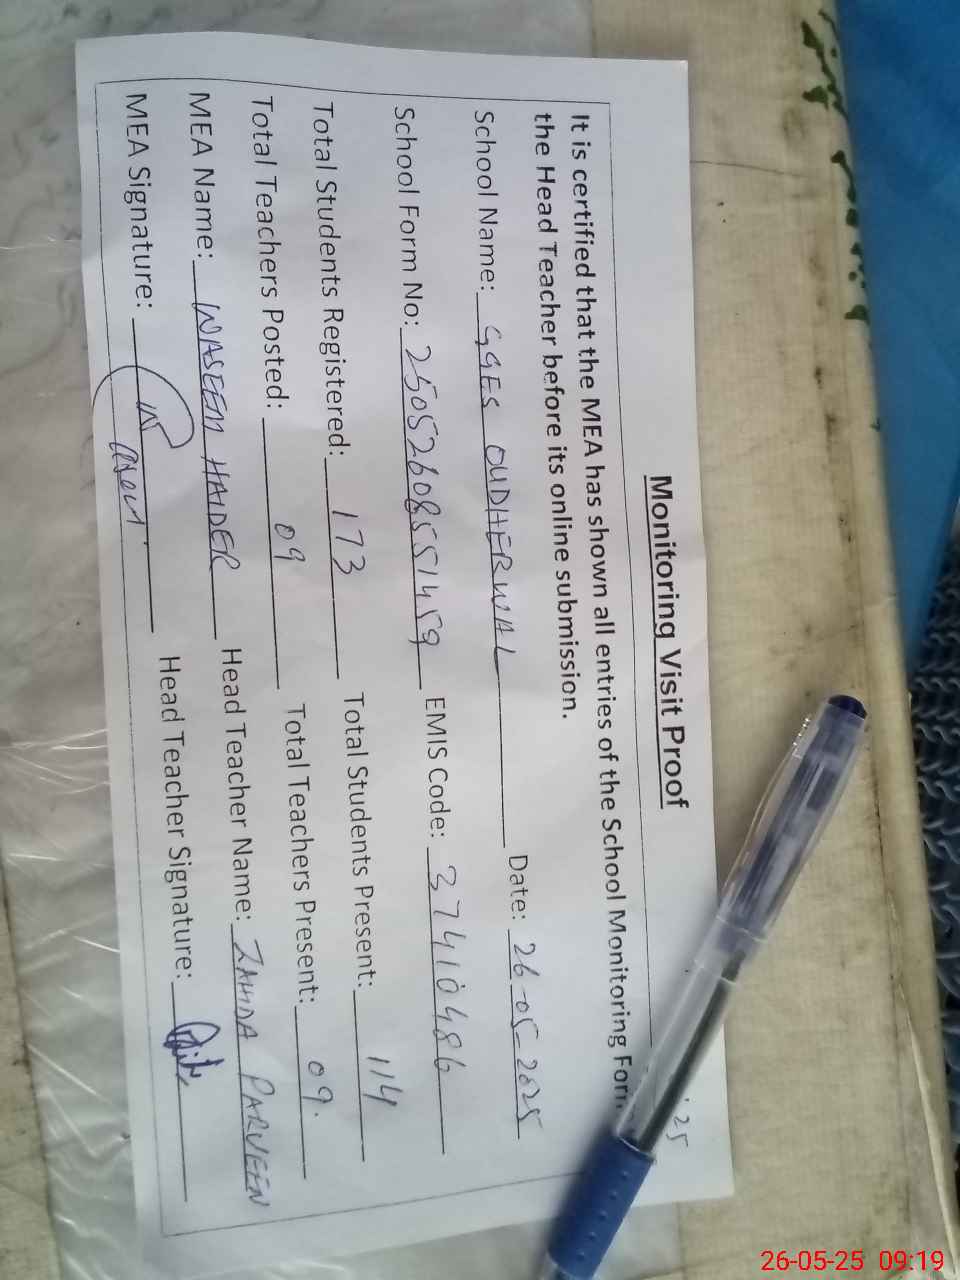 '25
Monitoring Visit Proof
It is certified that the MEA has shown all entries of the School Monitoring Form
the Head Teacher before its online submission.
School Name: GGES OUDHERWAL Date: 26-05-2025
School Form No: 25052608551459 EMIS Code: 37410486
Total Students Registered: 173 Total Students Present: 114
Total Teachers Posted: 09 Total Teachers Present: 09.
MEA Name: WASEEM HAIDER Head Teacher Name: ZAHIDA PARVEEN
MEA Signature: Head Teacher Signature:
26-05-25 09:19